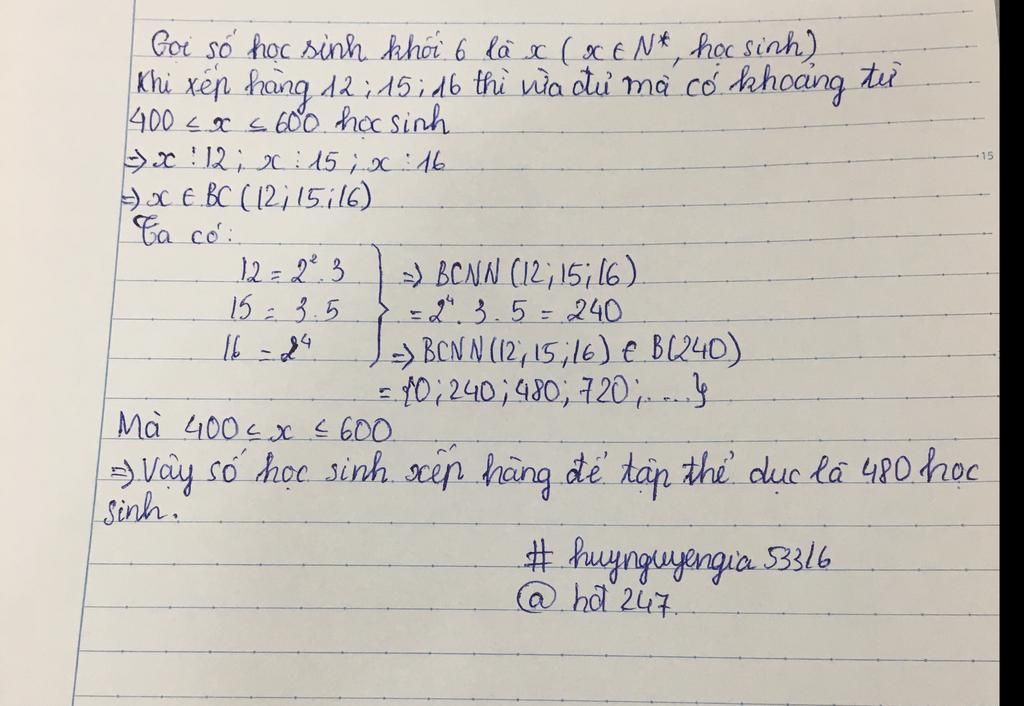 Gọi số học sinh khối 6 là x ( x ∈ N*, học sinh)
Khi xếp hàng 12 ; 15 ; 16 thì vừa đủ mà có khoảng từ
400 ≤ x ≤ 600 học sinh
⇒ x ⋮ 12 ; x ⋮ 15 ; x ⋮ 16
⇒ x ∈ BC (12 ; 15 ; 16)
Ta có:
12 = 2² . 3 } ⇒ BCNN (12 ; 15 ; 16)
15 = 3 . 5 = 2⁴ . 3 . 5 = 240
16 = 2⁴ ⇒ BCNN (12 ; 15 ; 16) ∈ B(240)
= {0 ; 240 ; 480 ; 720 ; ....}
Mà 400 ≤ x ≤ 600
⇒ Vậy số học sinh xếp hàng để tập thể dục là 480 học
sinh.
# huynguyengia 533/6
@ hđ 247.
15